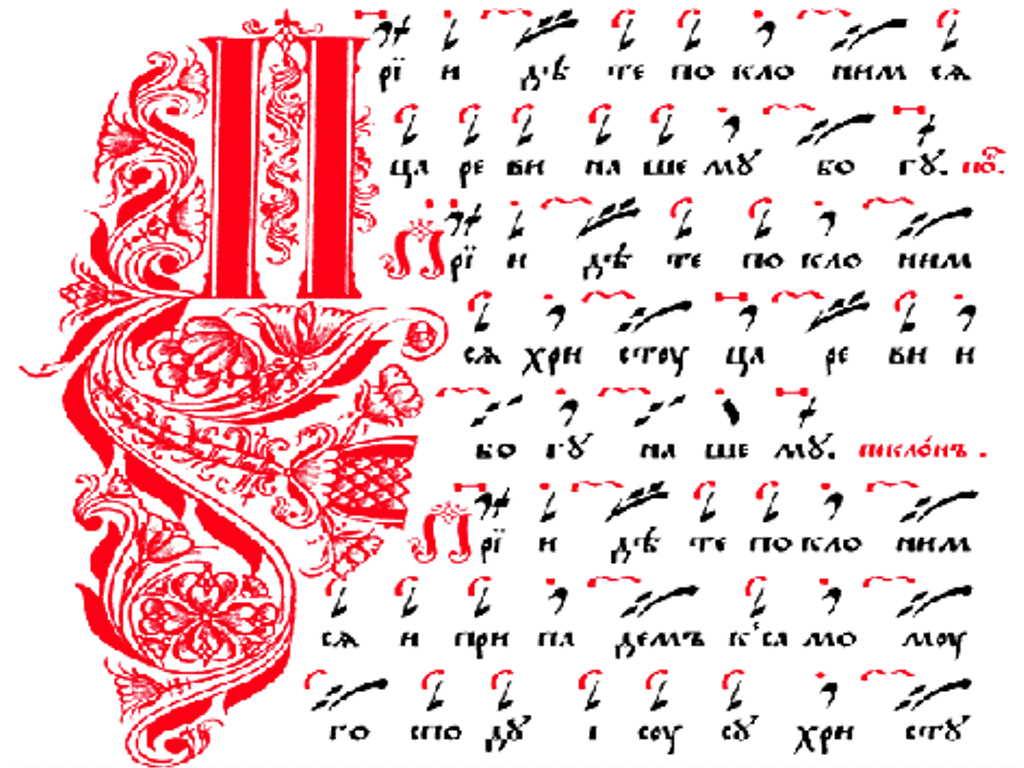 Прї и дѣ те по кло ним сѧ
ца ре ви на ше мꙋ бо гꙋ.
Прї и дѣ те по кло ним
сѧ хри стоу ца ре ви и
бо гꙋ на ше мꙋ. пикло́нъ.
Прї и дѣ те по кло ним
сѧ и при па демъ к са мо моу
го спо дꙋ і соу сꙋ хри стꙋ